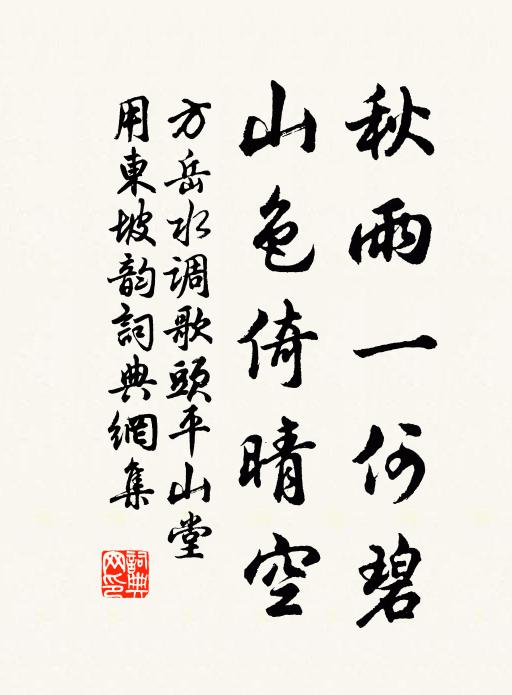 秋雨一何碧
山色倚晴空
方岳水调歌頭平山堂
用東坡韵詞典網集
詞典网印